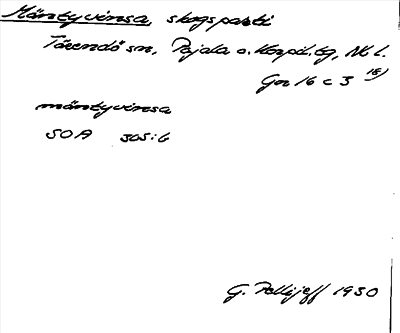 Mäntyvinsa, skogsparti
Tärendö sn, Pajala o. Korpil. tg, Nb l.
Gn 16 c 3 18)
mäntyvinsa
SOA 305:6
G. Pellijeff 1930